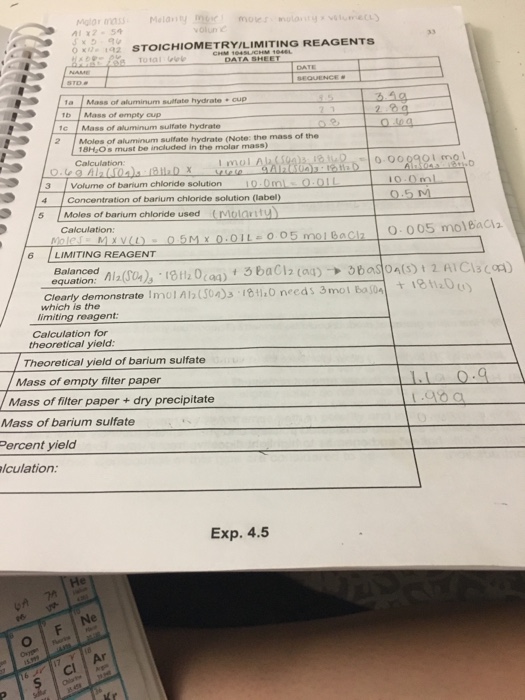 Molar mass: Molarity moles = molarity x volume(L)
Al x2 = 54 volume
33
S x 3
O x 12 = 192
STOICHIOMETRY/LIMITING REAGENTS
CHM 1045L/CHM 1046L
total 666 DATA SHEET
NAME DATE
STD.# SEQUENCE #
1a Mass of aluminum sulfate hydrate + cup 3.5 3.4g
1b Mass of empty cup 2.7 2.8g
1c Mass of aluminum sulfate hydrate 0.8
2 Moles of aluminum sulfate hydrate (Note: the mass of the
18H2Os must be included in the molar mass)
Calculation: 1 mol Al2(SO4)3·18H2O 0.000901 mol
0.6g Al2(SO4)3·18H2O x
3 Volume of barium chloride solution 10.0mL = 0.01L 10.0ml
4 Concentration of barium chloride solution (label) 0.5 M
5 Moles of barium chloride used (Molarity)
Calculation: 0.005 mol BaCl2
Moles = M x V(L) = 0.5M x 0.01L = 0.005 mol BaCl2
6 LIMITING REAGENT
Balanced
equation: Al2(SO4)3 · 18H2O(aq) + 3BaCl2(aq) → 3BaSO4(s) + 2AlCl3(aq)
+ 18H2O(l)
Clearly demonstrate 1mol Al2(SO4)3·18H2O needs 3mol BaSO4
which is the
limiting reagent:
Calculation for
theoretical yield:
Theoretical yield of barium sulfate
Mass of empty filter paper 1.1 0.9
Mass of filter paper + dry precipitate 1.98g
Mass of barium sulfate
Percent yield
alculation:
Exp. 4.5
He
7A
O F Ne
S Cl Ar
Kr